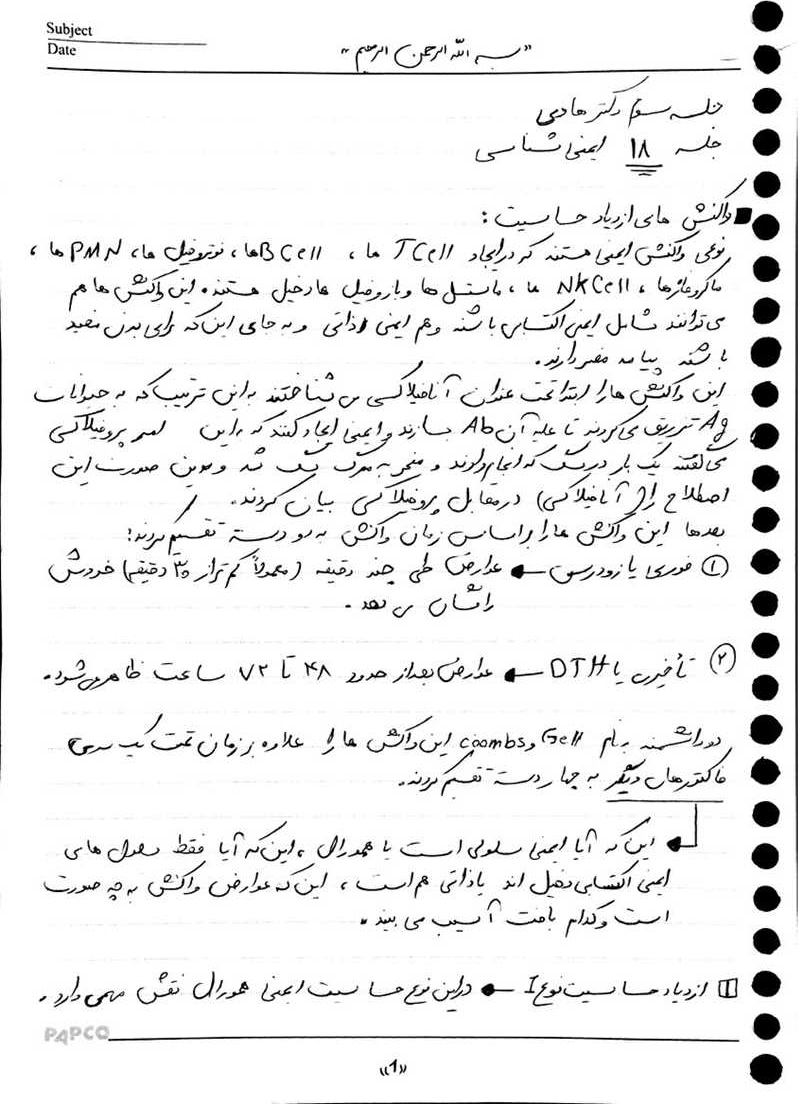 Subject
Date
"بسم الله الرحمن الرحیم"
جلسه سوم دکتر هادی
جلسه ۱۸ ایمنی شناسی
واکنش های ازدیاد حساسیت :
نوعی واکنش ایمنی هستند که در ایجاد T Cell ها ، B Cell ها، نوتروفیل ها، PMN ها ،
ماکروفاژها ، NK Cell ها ، ماستسل ها و بازوفیل ها دخیل هستند. این واکنش ها هم
می توانند شامل ایمنی اکتسابی باشند و هم ایمنی ذاتی و به جای این که برای بدن مفید
باشند پیامد مضر دارند.
این واکنش ها را ابتدا تحت عنوان آنافیلاکسی می شناختند به این ترتیب که به حیوانات
Ag تزریق می کردند تا علیه آن Ab بسازند و ایمنی ایجاد کنند که به این امر پروفیلاکسی
می گفتند یک بار در سگ که انجام دادند و منجر به مرگ سگ شد و بدین صورت این
اصطلاح را (آنافیلاکسی) در مقابل پروفیلاکسی بیان کردند.
بعدها این واکنش ها را براساس زمان واکنش به دو دسته تقسیم کردند:
۱ فوری یا زودرس ← عوارض طی چند دقیقه (معمولاً کم تر از ۳۰ دقیقه) خودش
را نشان می دهد.
۲ تأخیری یا DTH ← عوارض بعد از حدود ۴۸ تا ۷۲ ساعت ظاهر می شود.
دو دانشمند به نام Gell و coombs این واکنش ها را علاوه بر زمان تحت یک سری
فاکتورهای دیگر به چهار دسته تقسیم کردند.
این که آیا ایمنی سلولی است یا همورال ، این که آیا فقط سلول های
ایمنی اکتسابی دخیل اند یا ذاتی هم است ، این که عوارض واکنش به چه صورت
است و کدام بافت آسیب می بیند.
1 ازدیاد حساسیت نوع I ← در این نوع حساسیت ایمنی همورال نقش مهمی دارد.
PAPCO
«1»